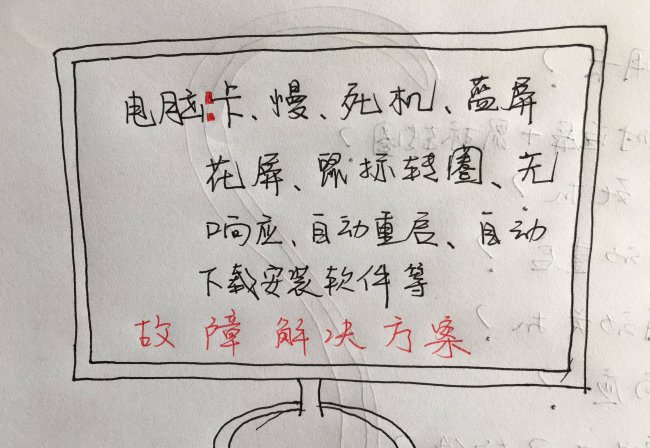 电脑:卡、慢、死机、蓝屏
花屏、鼠标转圈、无
响应、自动重启、自动
下载安装软件等
故障解决方案